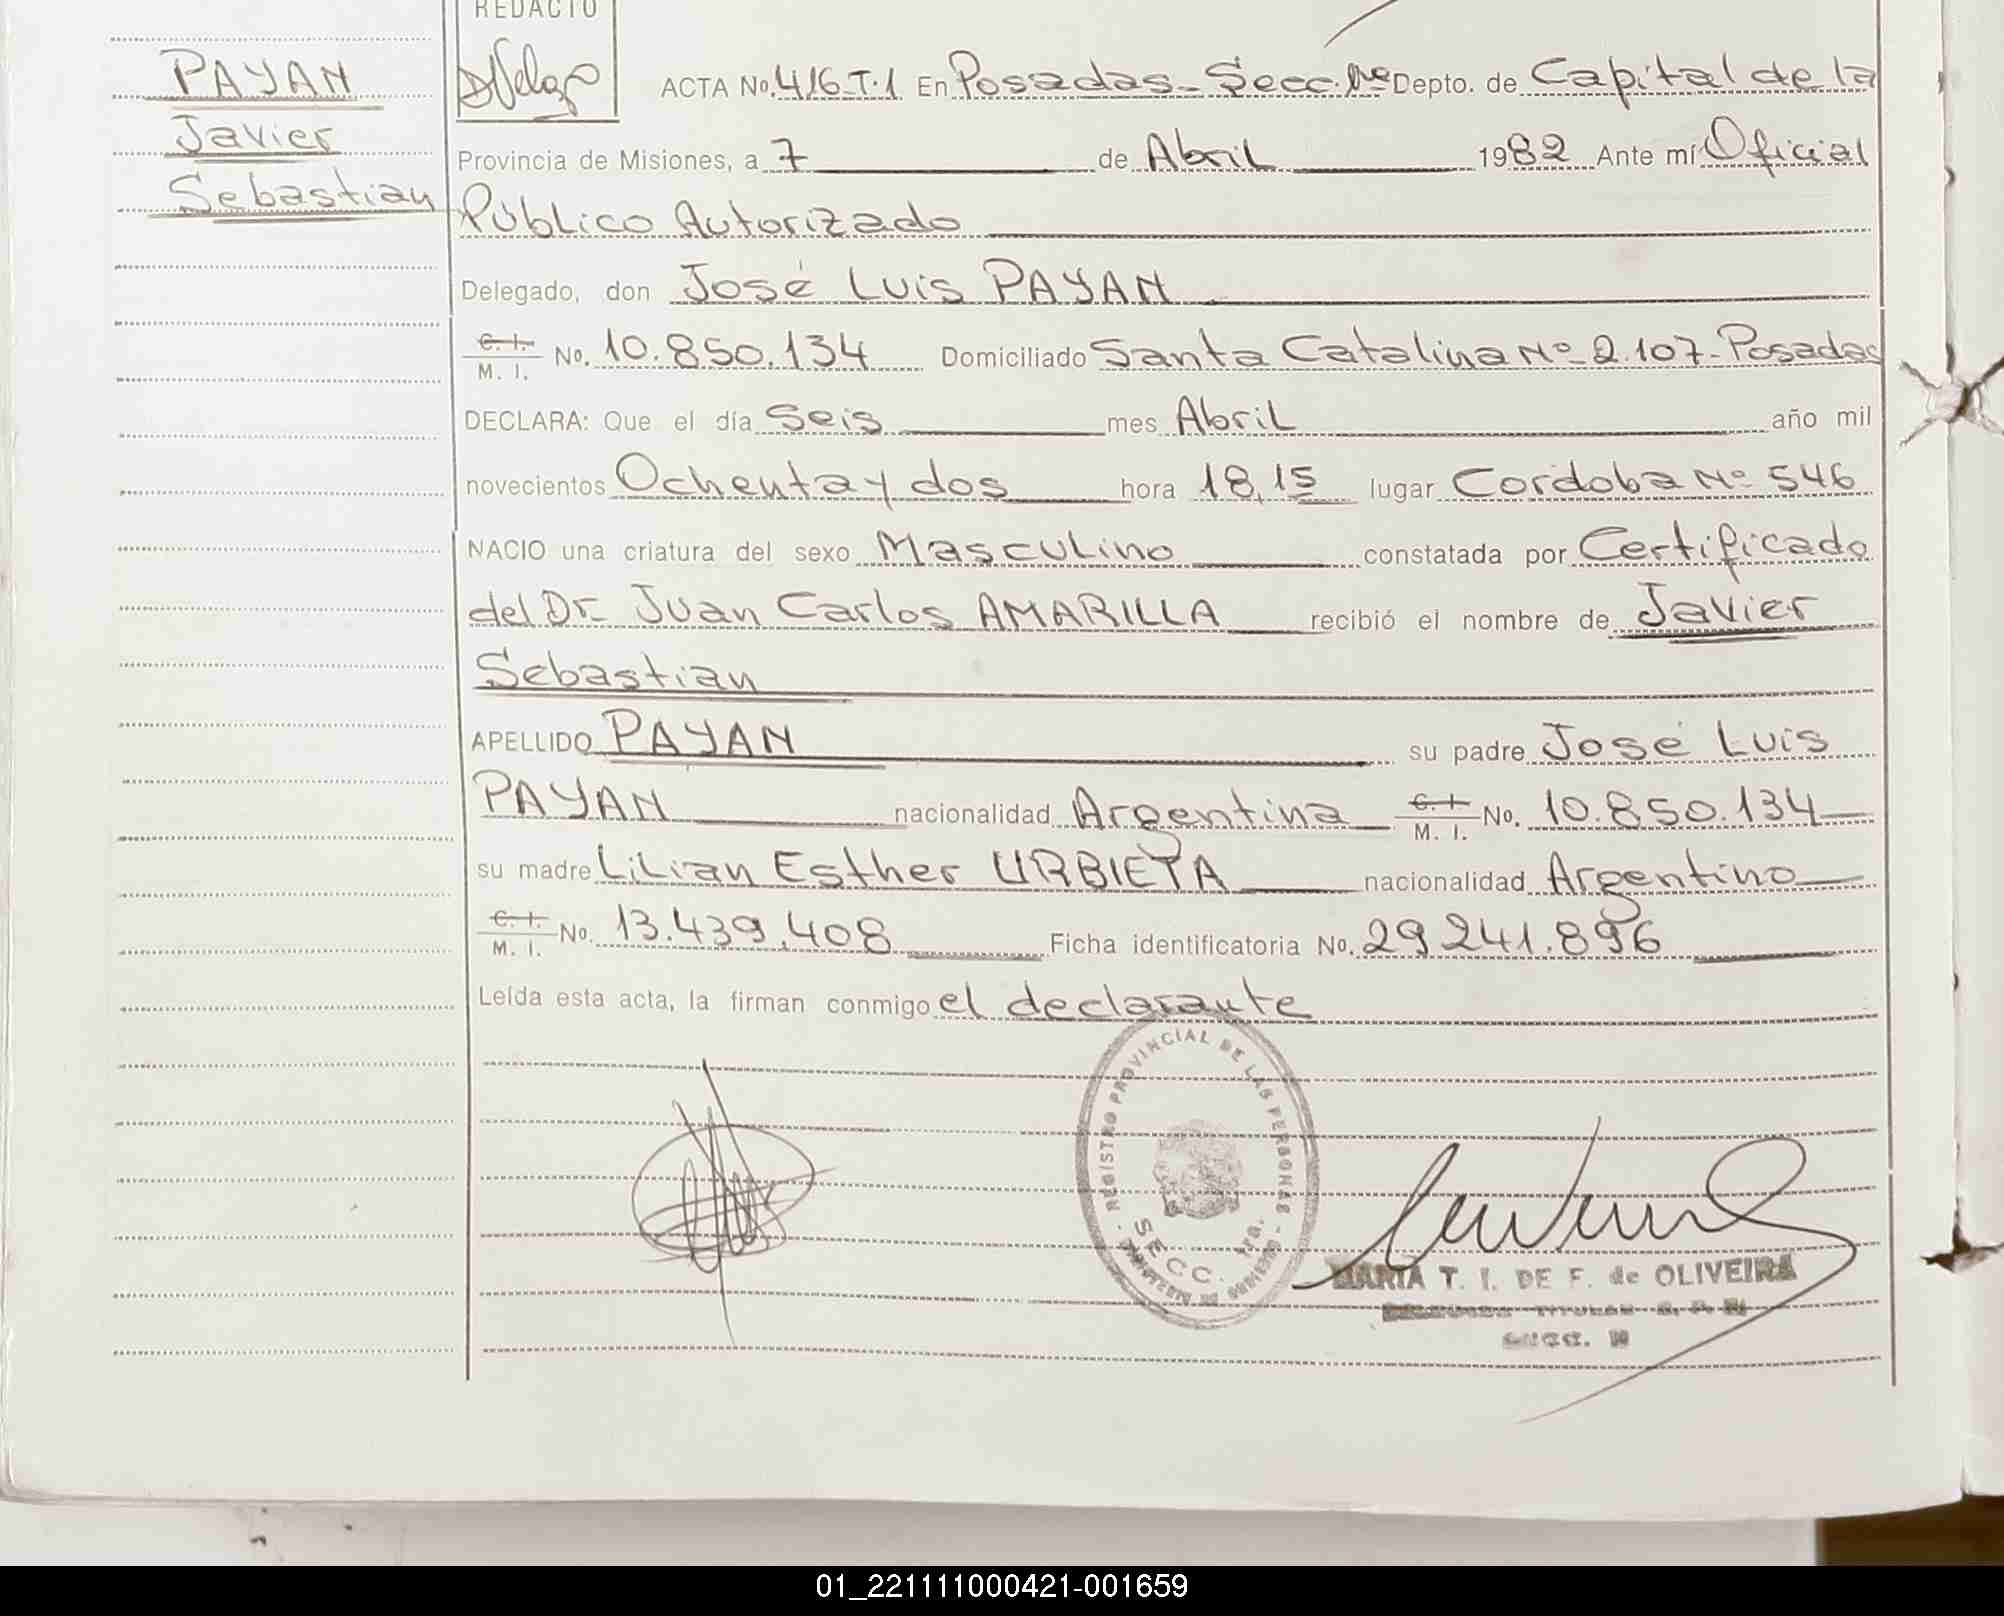 REDACTO
PAYAN
Javier
Sebastian
ACTA No. 416 T.1 En Posadas - Secc. 1ra Depto. de Capital de la
Provincia de Misiones, a 7 de Abril 1982 Ante mí Oficial
Público Autorizado
Delegado, don José Luis PAYAN
C. I. / M. I. No. 10.850.134 Domiciliado Santa Catalina Nº 2.107 - Posadas
DECLARA: Que el día Seis mes Abril año mil
novecientos Ochenta y dos hora 18,15 lugar Cordoba Nº 546
NACIO una criatura del sexo Masculino constatada por Certificado
del Dr. Juan Carlos AMARILLA recibió el nombre de Javier
Sebastian
APELLIDO PAYAN su padre José Luis
PAYAN nacionalidad Argentina C. I. / M. I. No. 10.850.134
su madre Lilian Esther URBIETA nacionalidad Argentino
C. I. / M. I. No. 13.439.408 Ficha identificatoria No. 29241.896
Leída esta acta, la firman conmigo el declarante
REGISTRO PROVINCIAL DE LAS PERSONAS
SECC. 1ra.
MARIA T. I. DE F. de OLIVEIRA
01_221111000421-001659